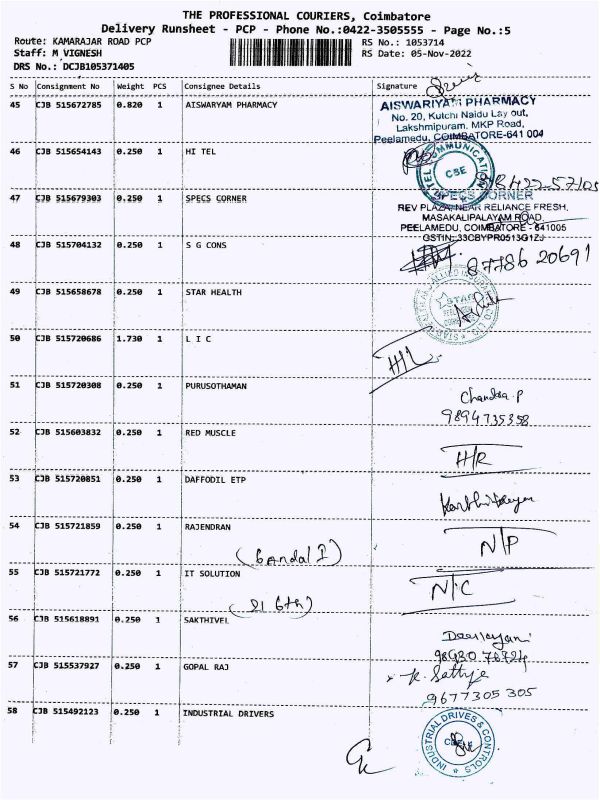 THE PROFESSIONAL COURIERS, Coimbatore
Delivery Runsheet - PCP - Phone No.:0422-3505555 - Page No.:5
Route: KAMARAJAR ROAD PCP RS No.: 1053714
Staff: M VIGNESH RS Date: 05-Nov-2022
DRS No.: DCJB105371405
S No Consignment No Weight PCS Consignee Details Signature
45 CJB 515672785 0.820 1 AISWARYAM PHARMACY
AISWARIYAM PHARMACY
No. 20, Kutchi Naidu Lay out,
Lakshmipuram, MKP Road,
Peelamedu, COIMBATORE-641 004
46 CJB 515654143 0.250 1 HI TEL
HITEL COMMUNICATION
CBE
47 CJB 515679303 0.250 1 SPECS CORNER
SPECS CORNER
REV PLAZA, NEAR RELIANCE FRESH,
MASAKALIPALAYAM ROAD,
PEELAMEDU, COIMBATORE - 641005
GSTIN: 33CBYPR0513G1ZJ
48 CJB 515704132 0.250 1 S G CONS
87786 20691
49 CJB 515658678 0.250 1 STAR HEALTH
STAR
50 CJB 515720686 1.730 1 L I C
51 CJB 515720308 0.250 1 PURUSOTHAMAN
Chandra P
9894735358
52 CJB 515603832 0.250 1 RED MUSCLE
H/R
53 CJB 515720851 0.250 1 DAFFODIL ETP
54 CJB 515721859 0.250 1 RAJENDRAN
N/P
55 CJB 515721772 0.250 1 IT SOLUTION
N/C
56 CJB 515618891 0.250 1 SAKTHIVEL
57 CJB 515537927 0.250 1 GOPAL RAJ
9677305 305
58 CJB 515492123 0.250 1 INDUSTRIAL DRIVERS
INDUSTRIAL DRIVES & CONTROLS